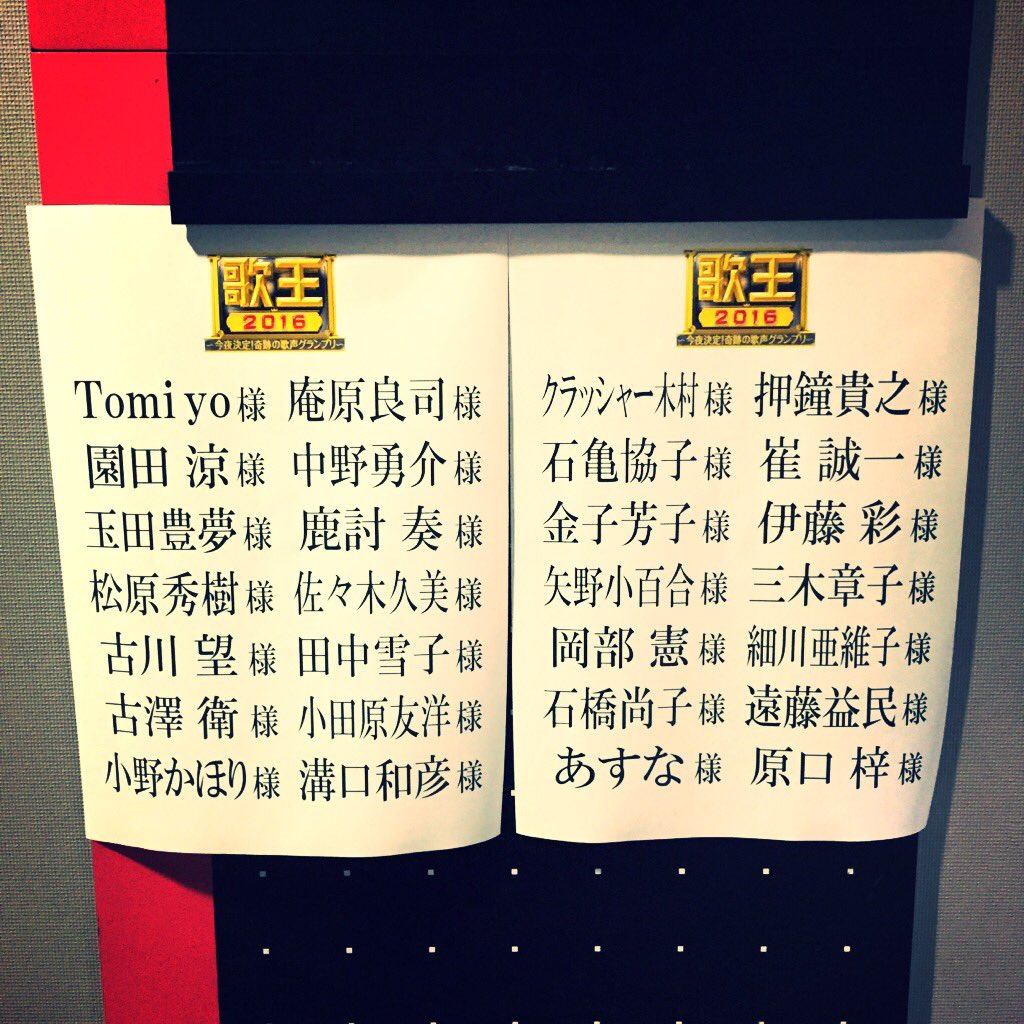 歌王
2016
～今夜決定!奇跡の歌声グランプリ～
Tomiyo様 庵原良司様
園田 涼様 中野勇介様
玉田豊夢様 鹿討 奏様
松原秀樹様 佐々木久美様
古川 望様 田中雪子様
古澤 衛様 小田原友洋様
小野かほり様 溝口和彦様
歌王
2016
～今夜決定!奇跡の歌声グランプリ～
クラッシャー木村様 押鐘貴之様
石亀協子様 崔 誠一様
金子芳子様 伊藤 彩様
矢野小百合様 三木章子様
岡部 憲様 細川亜維子様
石橋尚子様 遠藤益民様
あすな様 原口 梓様